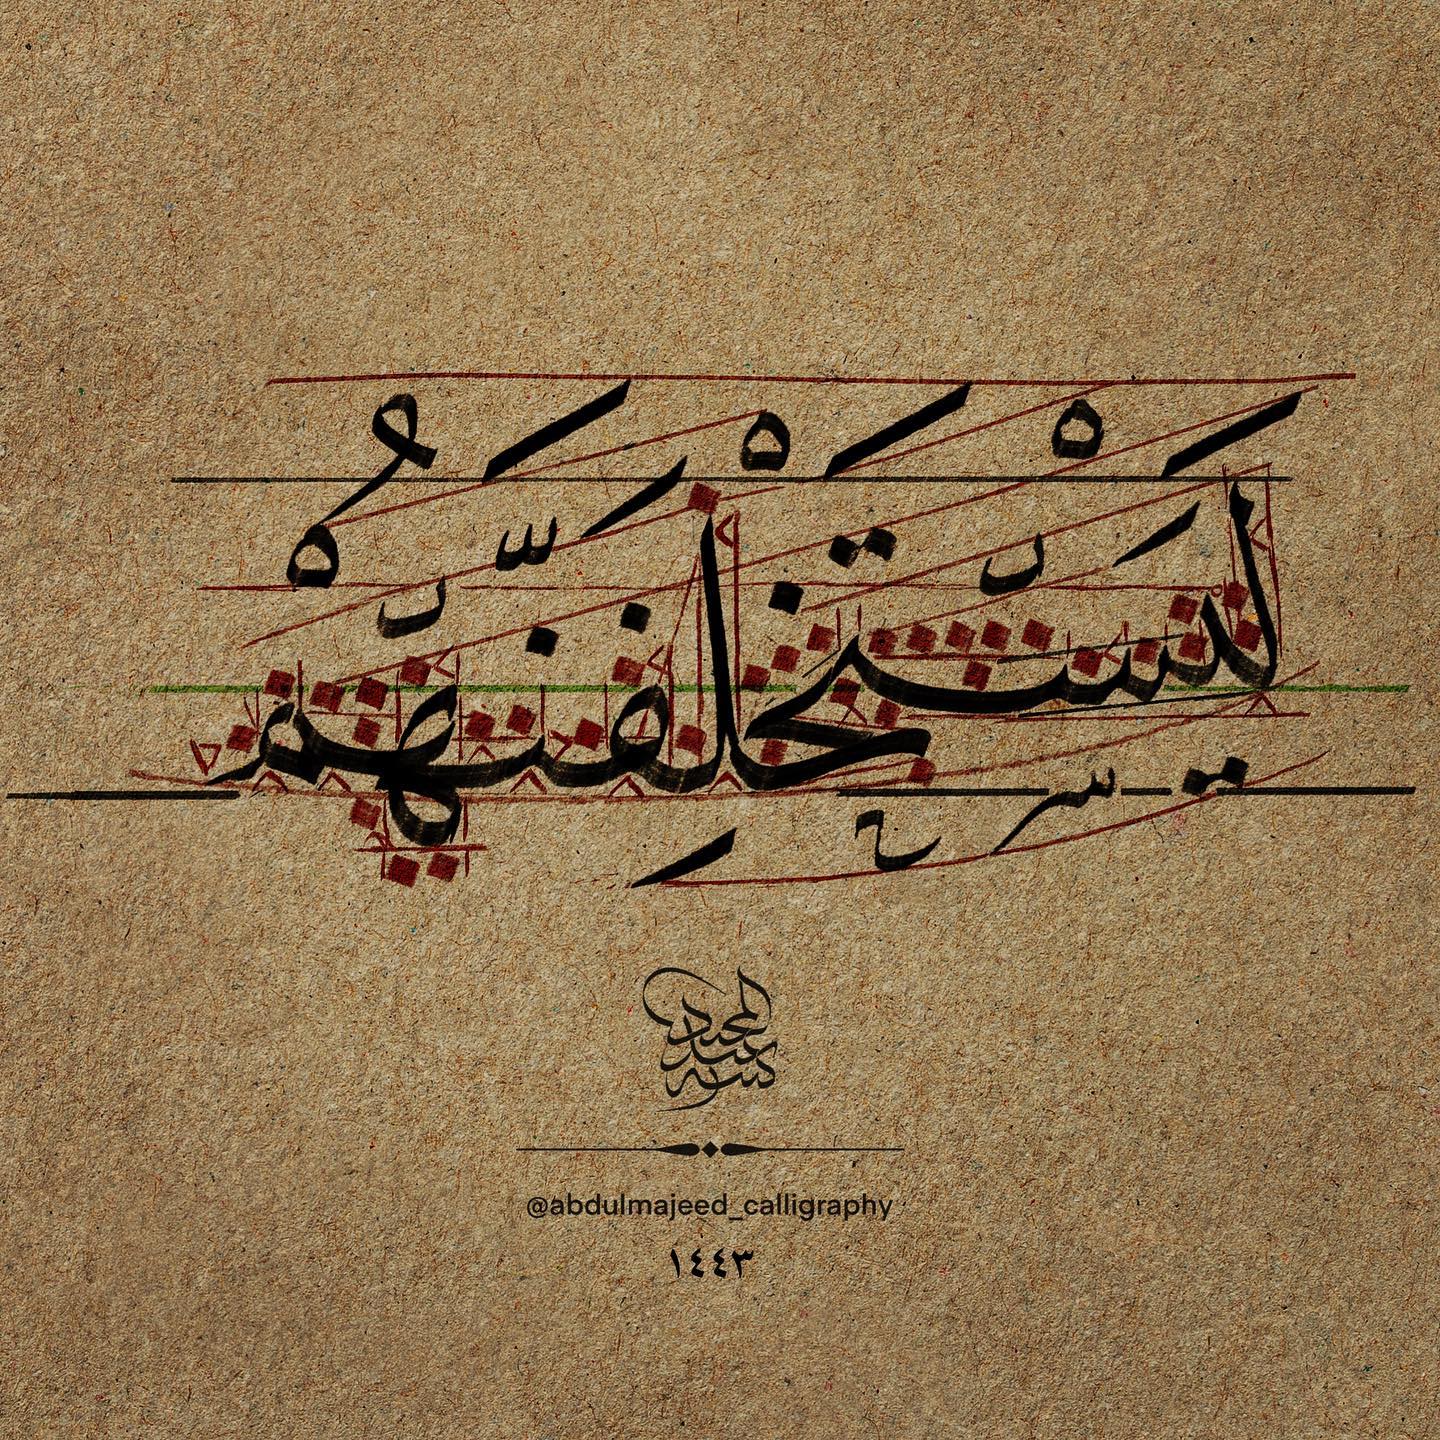 لَيَسْتَخْلِفَنَّهُمْ
كتبه
عبد
المجيد
@abdulmajeed_calligraphy
١٤٤٣